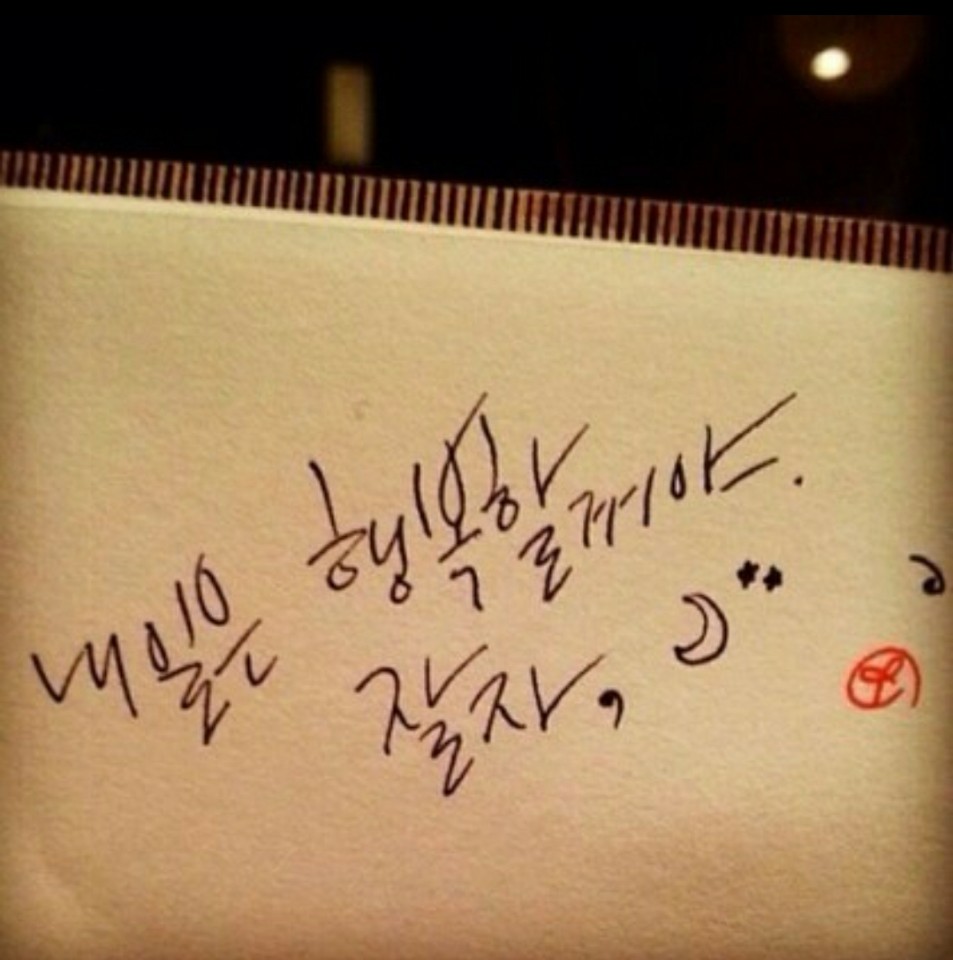 내일은 행복할게야.
잘자,